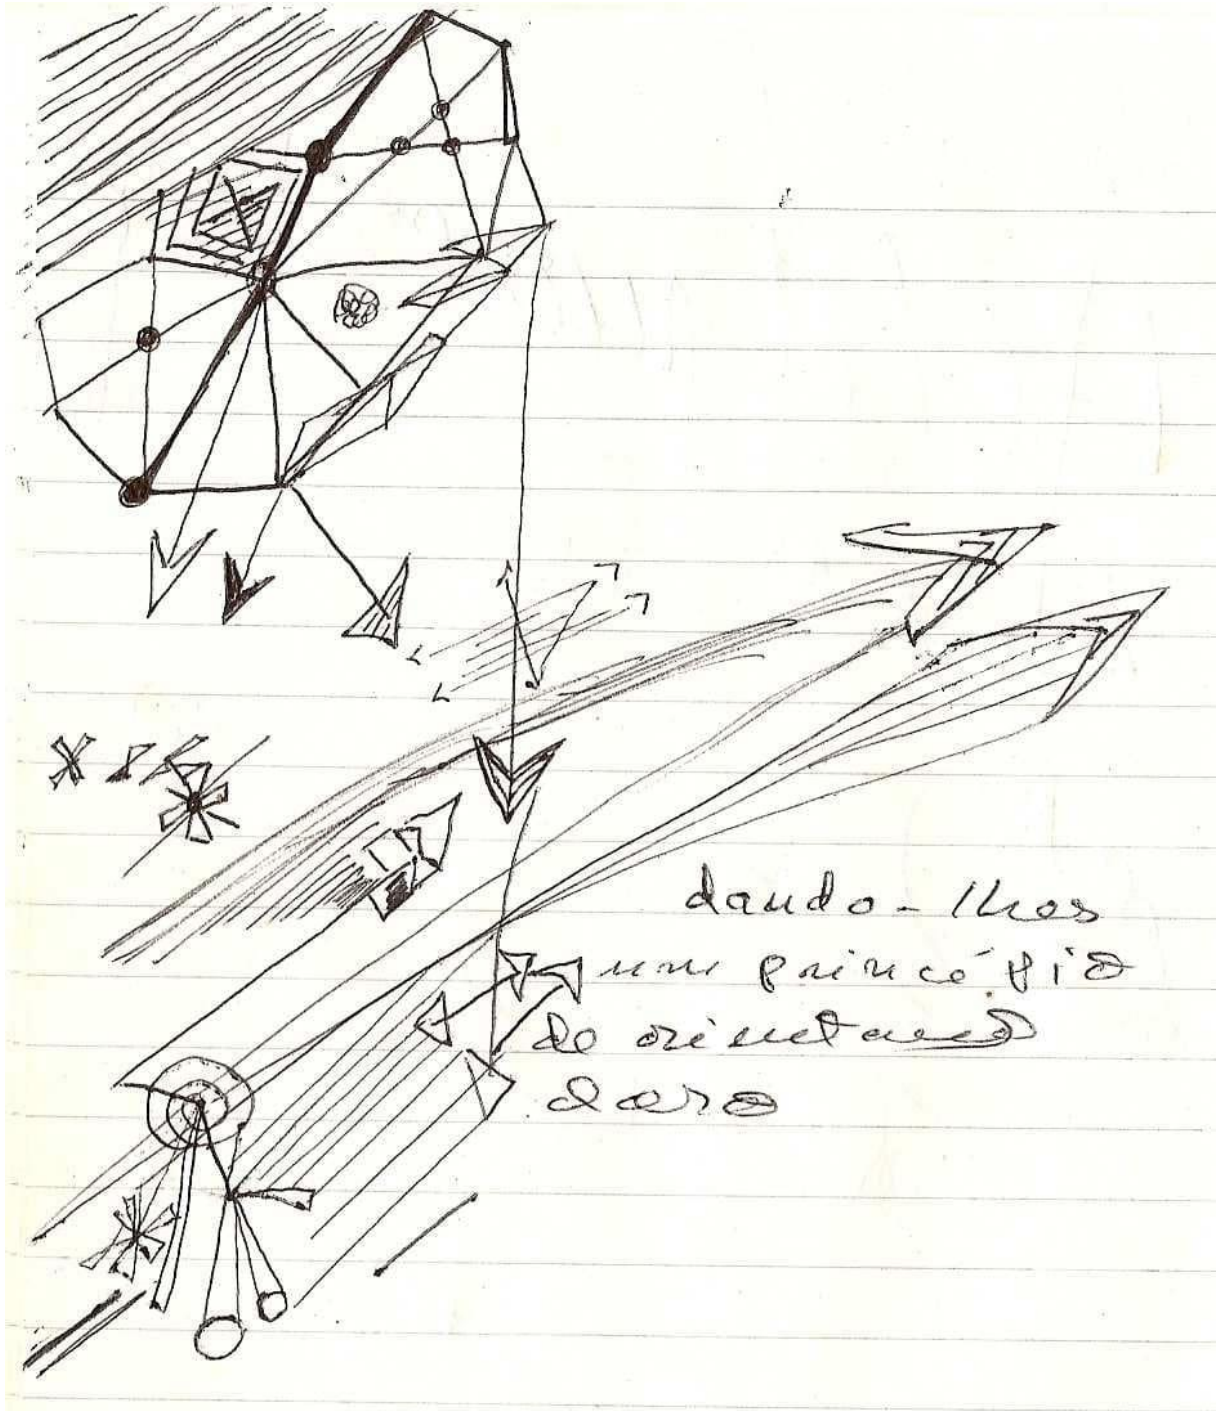 dando-lhes
um princípio
de orientação
claro